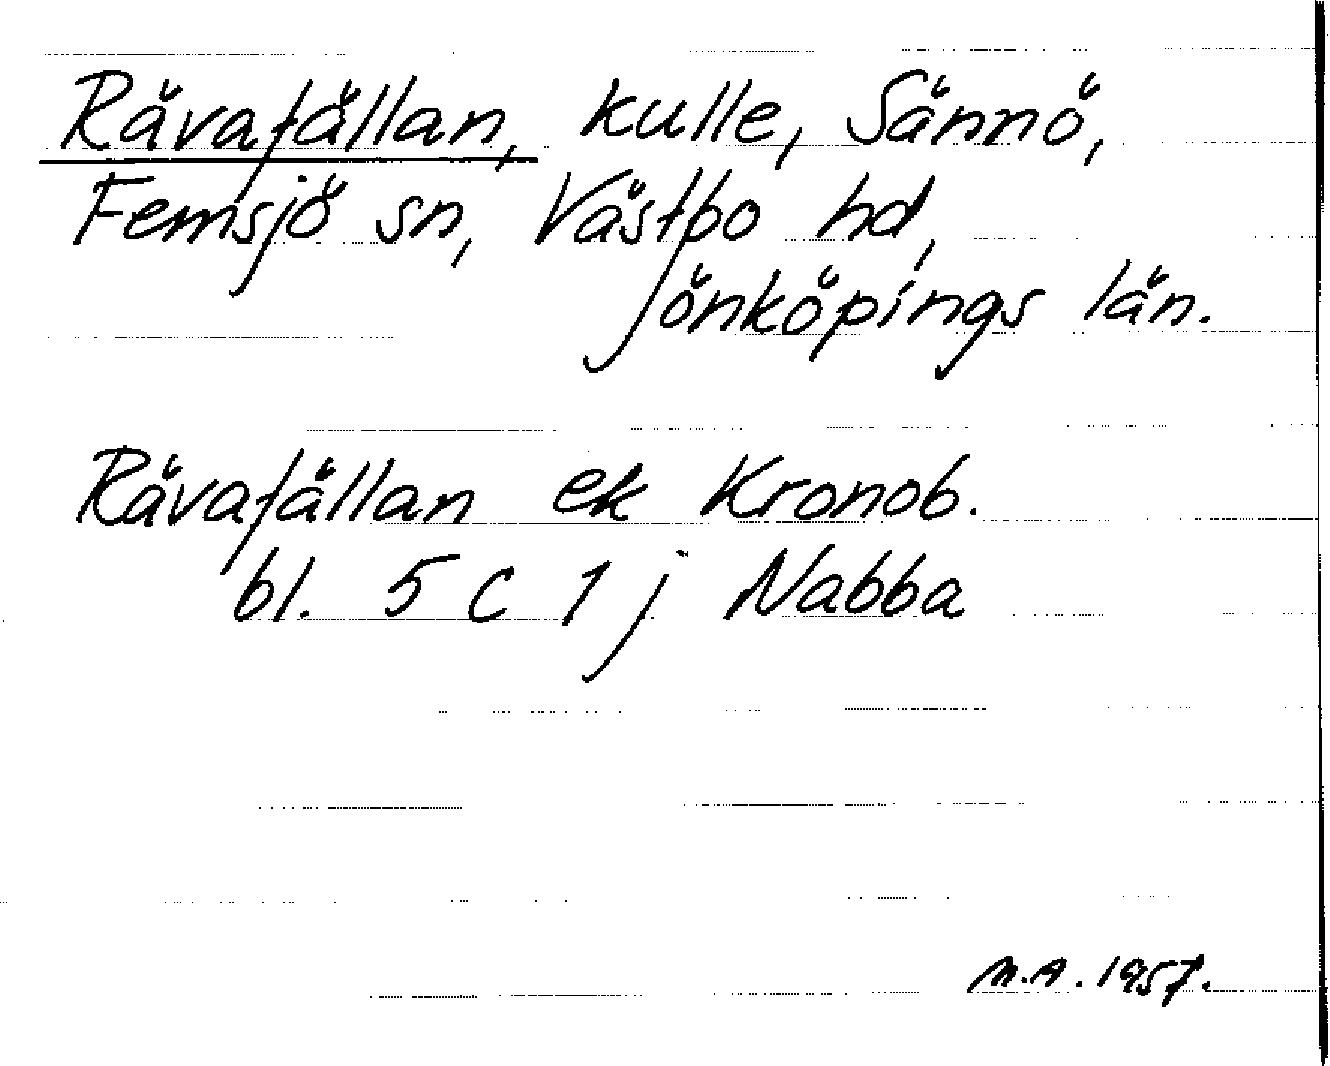 Rävafällan, kulle, Sännö,
Femsjö sn, Västbo hd,
Jönköpings län.
Rävafällan ek Kronob.
bl. 5 C 1 j Nabba
M.A. 1957.